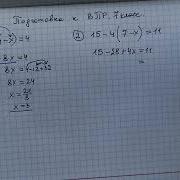 Подготовка к ВПР. 7 класс.
-x) = 4
8x = 4
8x = 4-12+32
8x = 24
x = 24/8
x = 3
② 15 - 4(7-x) = 11
15 - 28 + 4x = 11
=